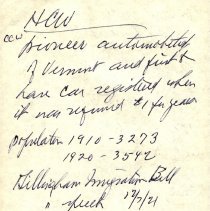 HCW
CCW
pioneer automobilist
of Vermont and first to
have car registered when
it was required $1 for years
population 1910 - 3273
1920 - 3542
Dillingham Immigration Bill
" speech 12/7/21